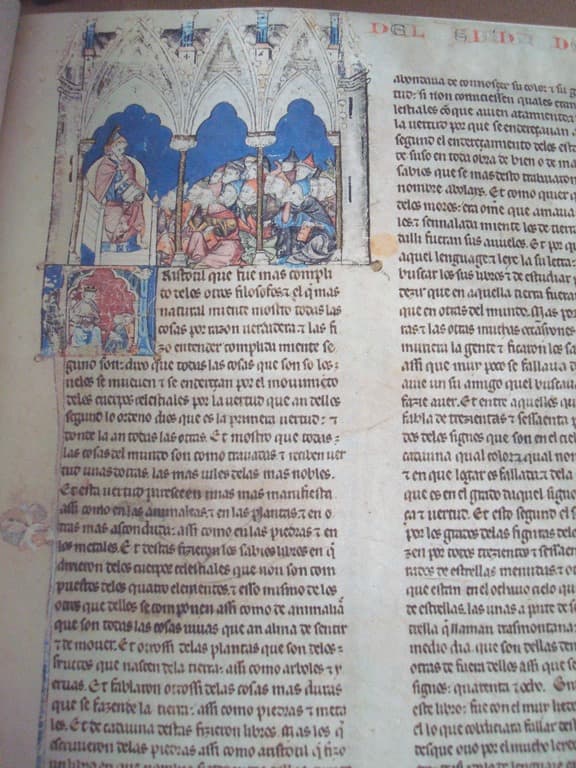 DEL
ARistotil que fue mas compli
to delos otros filosofos ⁊ el q̃ mas
natural miente mostro todas las
cosas por razon uerdadera ⁊ las fi
zo entender complida miente se
gund son: dixo que todas las cosas que son so los
cielos se mueuen ⁊ se endereçan por el mouimiẽto
delos cuerpos celestiales por la uertud que an dellos
segund lo ordeno dios que es la primera uertud: ⁊
donde la an todas las otras. Et mostro que todas
las cosas del mundo son como trauadas ⁊ reciben uer
tud unas dotras. las mas uiles delas mas nobles.
Et esta uertud paresce en unas mas manifiesta
assi como en las animalias ⁊ en las plantas ⁊ en o
tras mas asconduda: assi como en las piedras ⁊ en
los metales. Et destas fizieron los sabios libros en q̃
dixieron delos cuerpos celestiales que non son com
puestos delos quatro elementos. ⁊ esso mismo de los
otros que dellos se componen assi como de animalia
que son todas las cosas uiuas que an alma de sentir
⁊ de mouer. Et otrossi delas plantas que son
que nascen dela tierra: assi como arboles ⁊ y
eruas. Et fablaron otrossi delas cosas mas duras
que se fazen de la tierra: assi como piedras ⁊ meta
les. Et de cadauna destas fizieron libros.
escriuieron delas piedras assi como aristotil q̃ fizo
un libro en que
abondaua de connoscer su color; ⁊ su g
tud: si non connosciessen quales eran
lestiales cõ que auien atamiento
la uertud por que se endereçauan
segund el endereçamiento delos est
de suso en toda obra de bien o de ma
sabios que se mas desto trabaiaron
nombre abolays. Et como quier
delos moros: era ome que amaua
les: ⁊ sennalada miente los de tierra
dalli fueran sus auuelos. Et por q
aquel lenguage: ⁊ leye la su letra:
buscar los sus libros ⁊ de estudiar p
dezir que en aquella tierra fuera
que en otras del mundo. Mas por
ras ⁊ las otras muchas occasiones
muriera la gente ⁊ ficaron los sa
assi que muy poco se fallaua d
auie un su amigo quel buscaua
fazie auer. Et entre aquellos qu
fabla de trezientas ⁊ sessaenta p
dos delos signos que son en el cielo
cadauna qual color ⁊ qual nom
⁊ en que logar es fallada: ⁊ dela
que es en el grado daquel signo
ça ⁊ uertud. Et esto segund el s
por los grados delas figuras delo
zen por todos trezientos ⁊ sessaen
de estrellas menudas: ⁊ ot
que estan en el ochauo cielo qu
de estrellas. las unas a parte de s
trella q̃ llaman trasmontana:
medio dia. que son dellas den
otras de fuera dellos assi que se
signos: quarenta ⁊ ocho.
este libro: fue con el muy
el lo que cobdiciaua fallar del
desque ouo por el mucho leydo